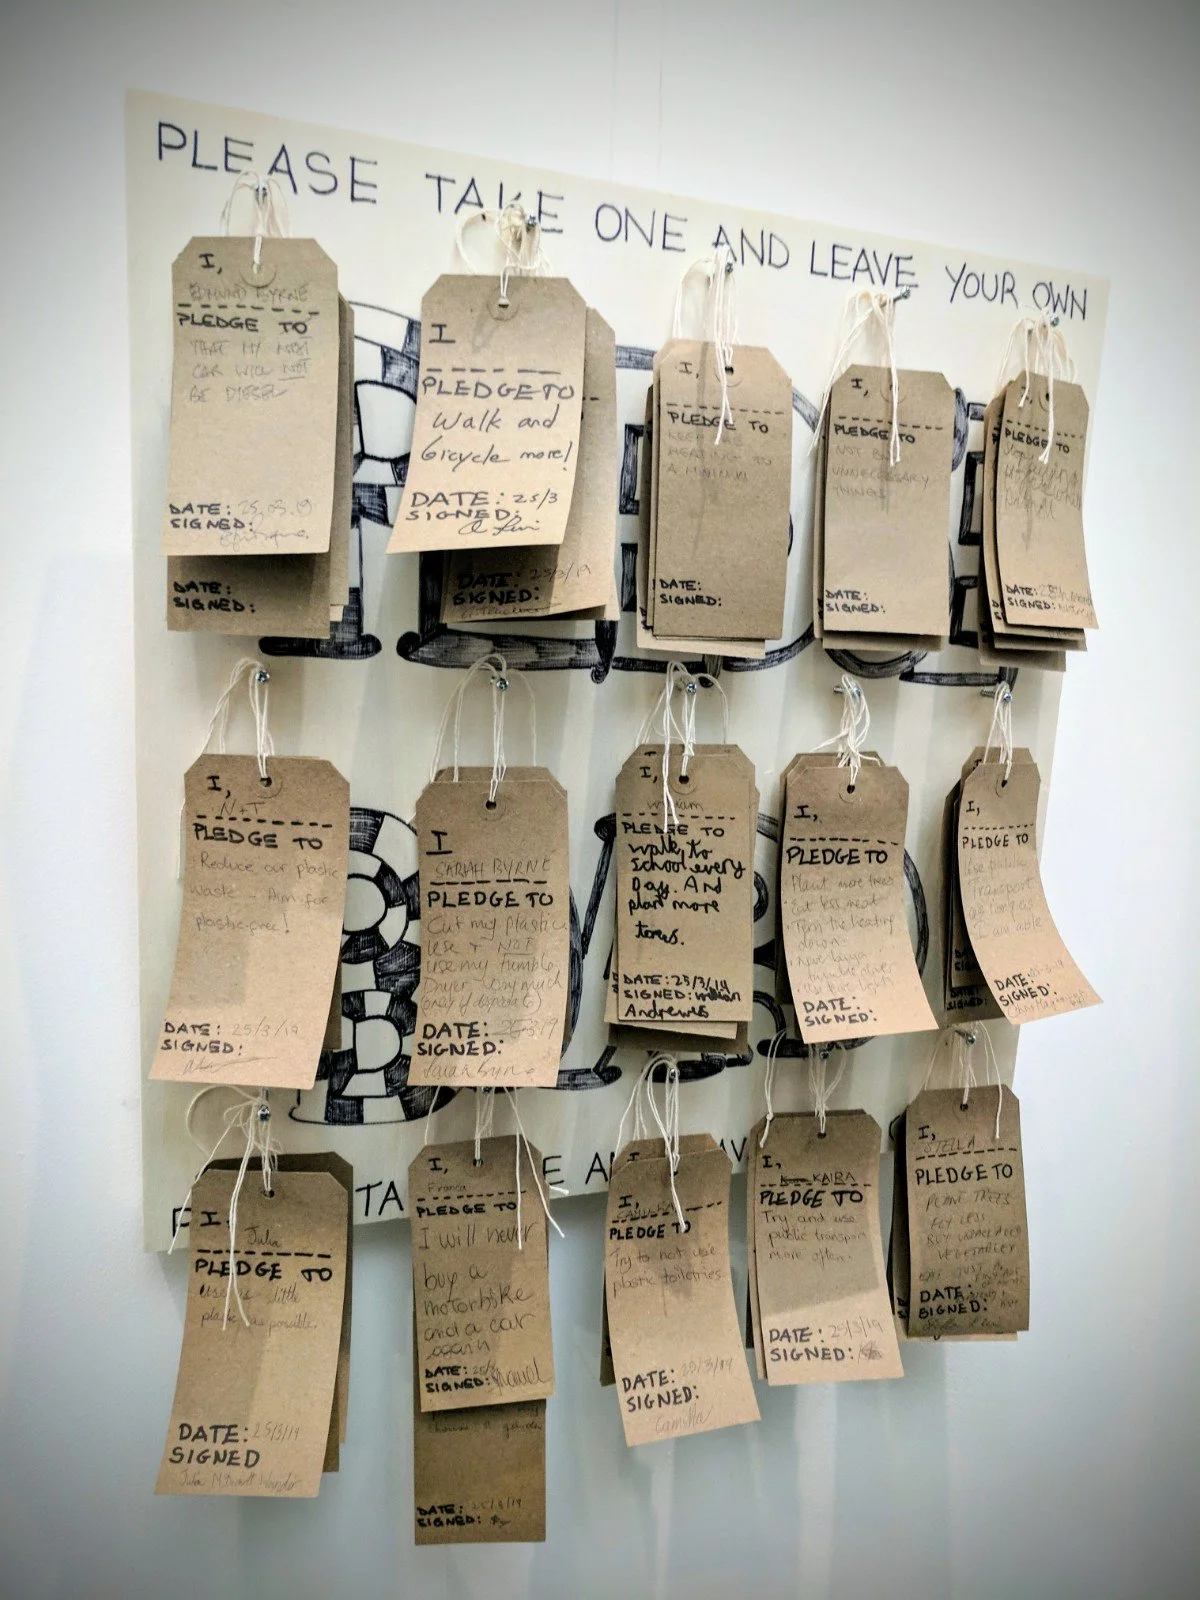 PLEASE TAKE ONE AND LEAVE YOUR OWN
I,
EDMUND BYRNE
PLEDGE TO
THAT MY NEXT
CAR WILL NOT
BE DIESEL
DATE: 25.03.19
SIGNED:
DATE:
SIGNED:
I
PLEDGE TO
Walk and
bicycle more!
DATE: 25/3
SIGNED:
DATE: 25/3/19
SIGNED:
I,
PLEDGE TO
KEEP
HEATING TO
A MINIMUM
DATE:
SIGNED:
I,
PLEDGE TO
NOT BUY
UNNECESSARY
THINGS
DATE:
SIGNED:
I,
PLEDGE TO
DATE:
SIGNED:
I,
N+T
PLEDGE TO
Reduce our plastic
waste - Aim for
plastic-free!
DATE: 25/3/19
SIGNED:
I
SARAH BYRNE
PLEDGE TO
Cut my plastic
use + NOT
use my tumble
Dryer very much
(only if desperate)
DATE: 25/3/19
SIGNED:
Sarah Byrne
I,
William
PLEDGE TO
walk to
School every
Day. And
plant more
trees.
DATE: 25/3/19
SIGNED: William
Andrewes
I,
PLEDGE TO
Plant more trees
Eat less meat
Turn the heating
down
DATE:
SIGNED:
I,
PLEDGE TO
Use public
Transport
as long as
I am able
DATE:
SIGNED:
TA E A AV
I,
Julia
PLEDGE TO
use as little
plastic as possible.
DATE: 25/3/19
SIGNED
I,
Franca
PLEDGE TO
I will never
buy a
motorbike
and a car
again
DATE: 25/3
SIGNED:
garden
DATE: 25/3/19
SIGNED:
I,
PLEDGE TO
Try to not use
plastic toiletries.
DATE: 25/3/19
SIGNED:
Camilla
I,
KAIRA
PLEDGE TO
Try and use
public transport
more often.
DATE: 25/3/19
SIGNED:
I,
STELLA
PLEDGE TO
PLANT TREES
FLY LESS
BUY
VEGETABLES
DATE:
SIGNED: